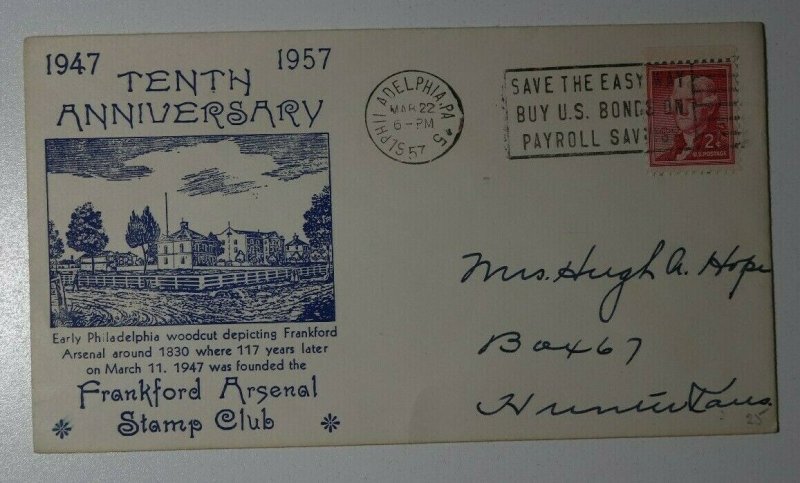 1947 1957
TENTH
ANNIVERSARY
Early Philadelphia woodcut depicting Frankford
Arsenal around 1830 where 117 years later
on March 11, 1947 was founded the
Frankford Arsenal
Stamp Club
PHILADELPHIA, PA
MAR 22
6-PM
57
5
SAVE THE EASY
BUY U.S. BONDS ON
PAYROLL SAV
2¢
U.S. POSTAGE
Mrs. Hugh A. Hope
Box 67
Hunter Kans
25